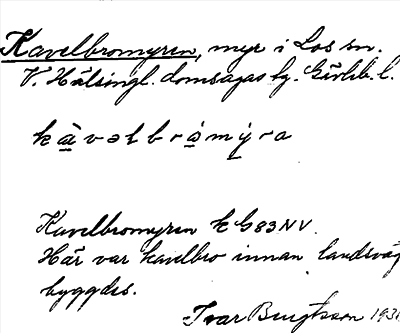 Kavelbromyren, myr i Los sn.
V. Hälsingl. domsagas tg. Gävleb. l.
kävəlbrómýra
Kavelbromyren k G83NV.
Här var kavelbro innan landsväg
byggdes.
Ivar Bengtsson 193